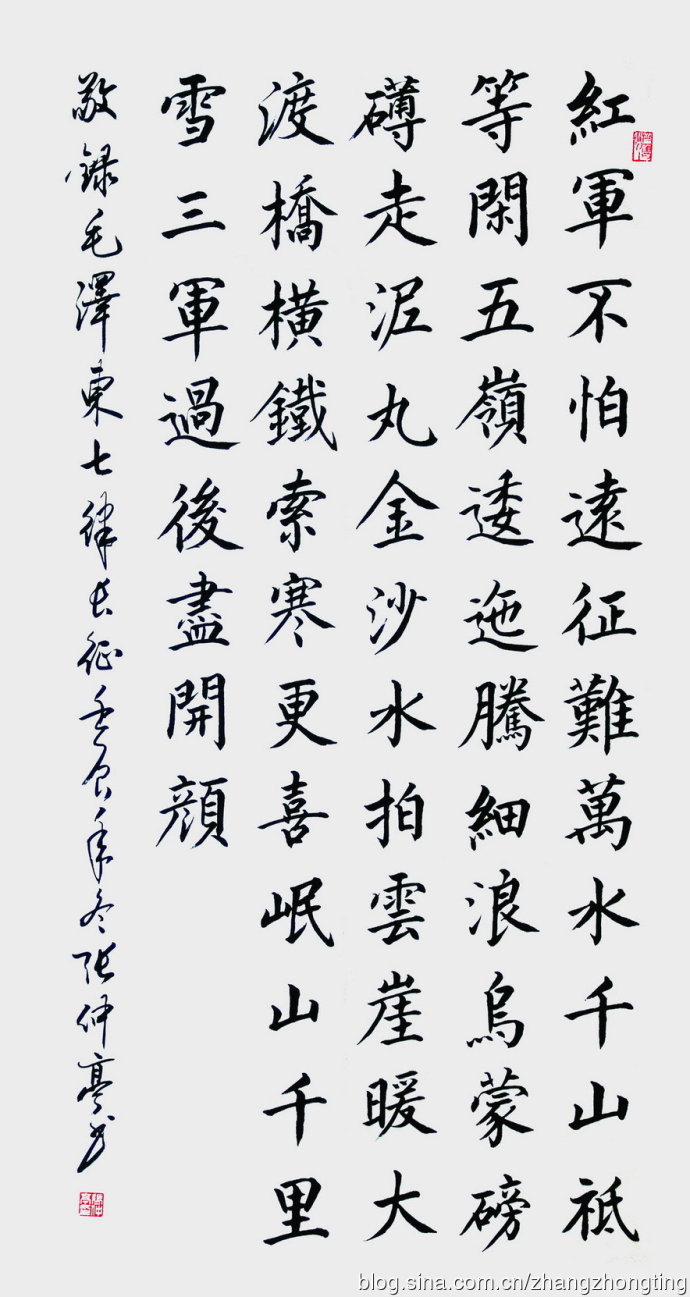 紅軍不怕遠征難萬水千山祗
等閑五嶺逶迤騰細浪烏蒙磅
礴走泥丸金沙水拍雲崖暖大
渡橋橫鐵索寒更喜岷山千里
雪三軍過後盡開顏
敬録毛澤東七律長征壬辰年冬張仲亭書
blog.sina.com.cn/zhangzhongting